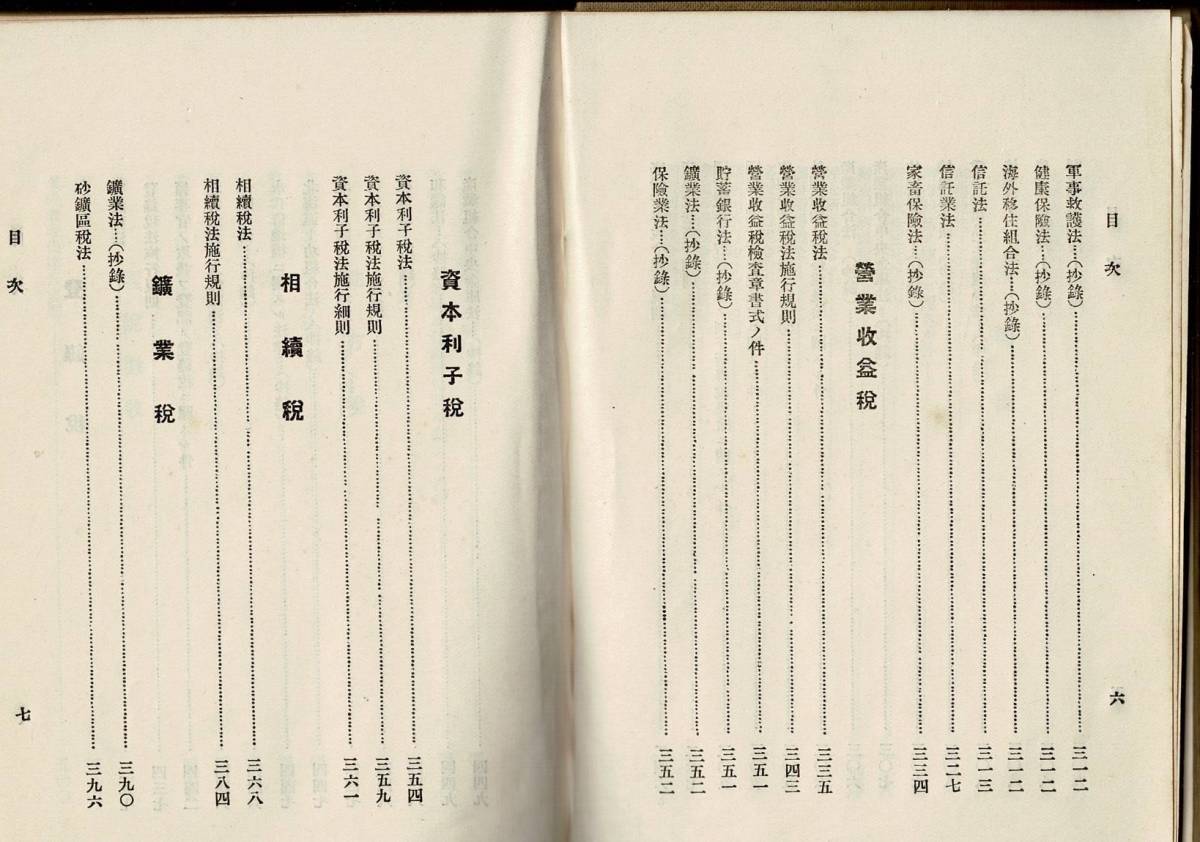 目次
六
軍事救護法…(抄錄)…三一二
健康保險法…(抄錄)…三一二
海外移住組合法…(抄錄)…三一二
信託法…三一三
信託業法…三二七
家畜保險法…(抄錄)…三三四
營業收益稅
營業收益稅法…三三五
營業收益稅法施行規則…三四三
營業收益稅檢査章書式ノ件…三五一
貯蓄銀行法…(抄錄)…三五一
鑛業法…(抄錄)…三五二
保險業法…(抄錄)…三五二
資本利子稅
資本利子稅法…三五四
資本利子稅法施行規則…三五九
資本利子稅法施行細則…三六一
相續稅
相續稅法…三六八
相續稅法施行規則…三八四
鑛業稅
鑛業法…(抄錄)…三九〇
砂鑛區稅法…三九六
目次
七